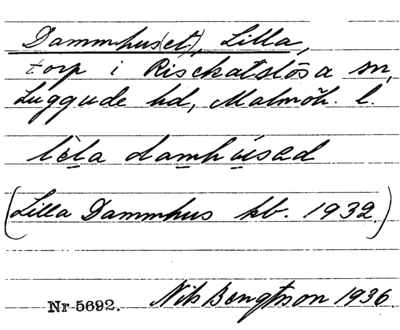 Dammhus(et), Lilla,
torp i Risekatslösa sn,
Luggude hd, Malmöh. l.
lèla damhúsəd
(Lilla Dammhus kb. 1932.)
Nr 5692. Nils Bengtsson 1936.